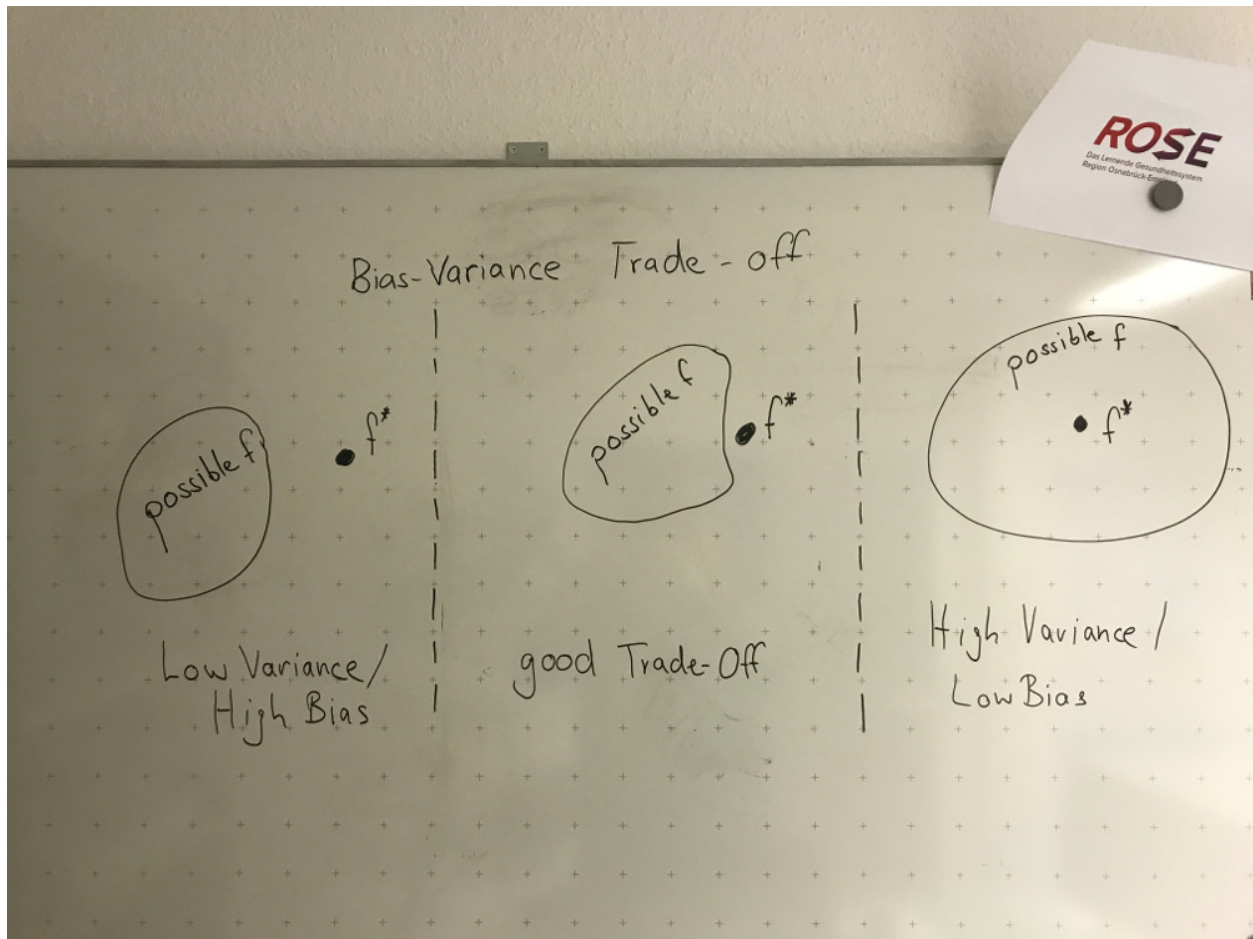 ROSE
Das Lernende Gesundheitssystem
Region Osnabrück-
Bias-Variance Trade-off
possible f
f*
Low Variance/
High Bias
possible f
f*
good Trade-Off
possible f
f*
High Variance/
Low Bias